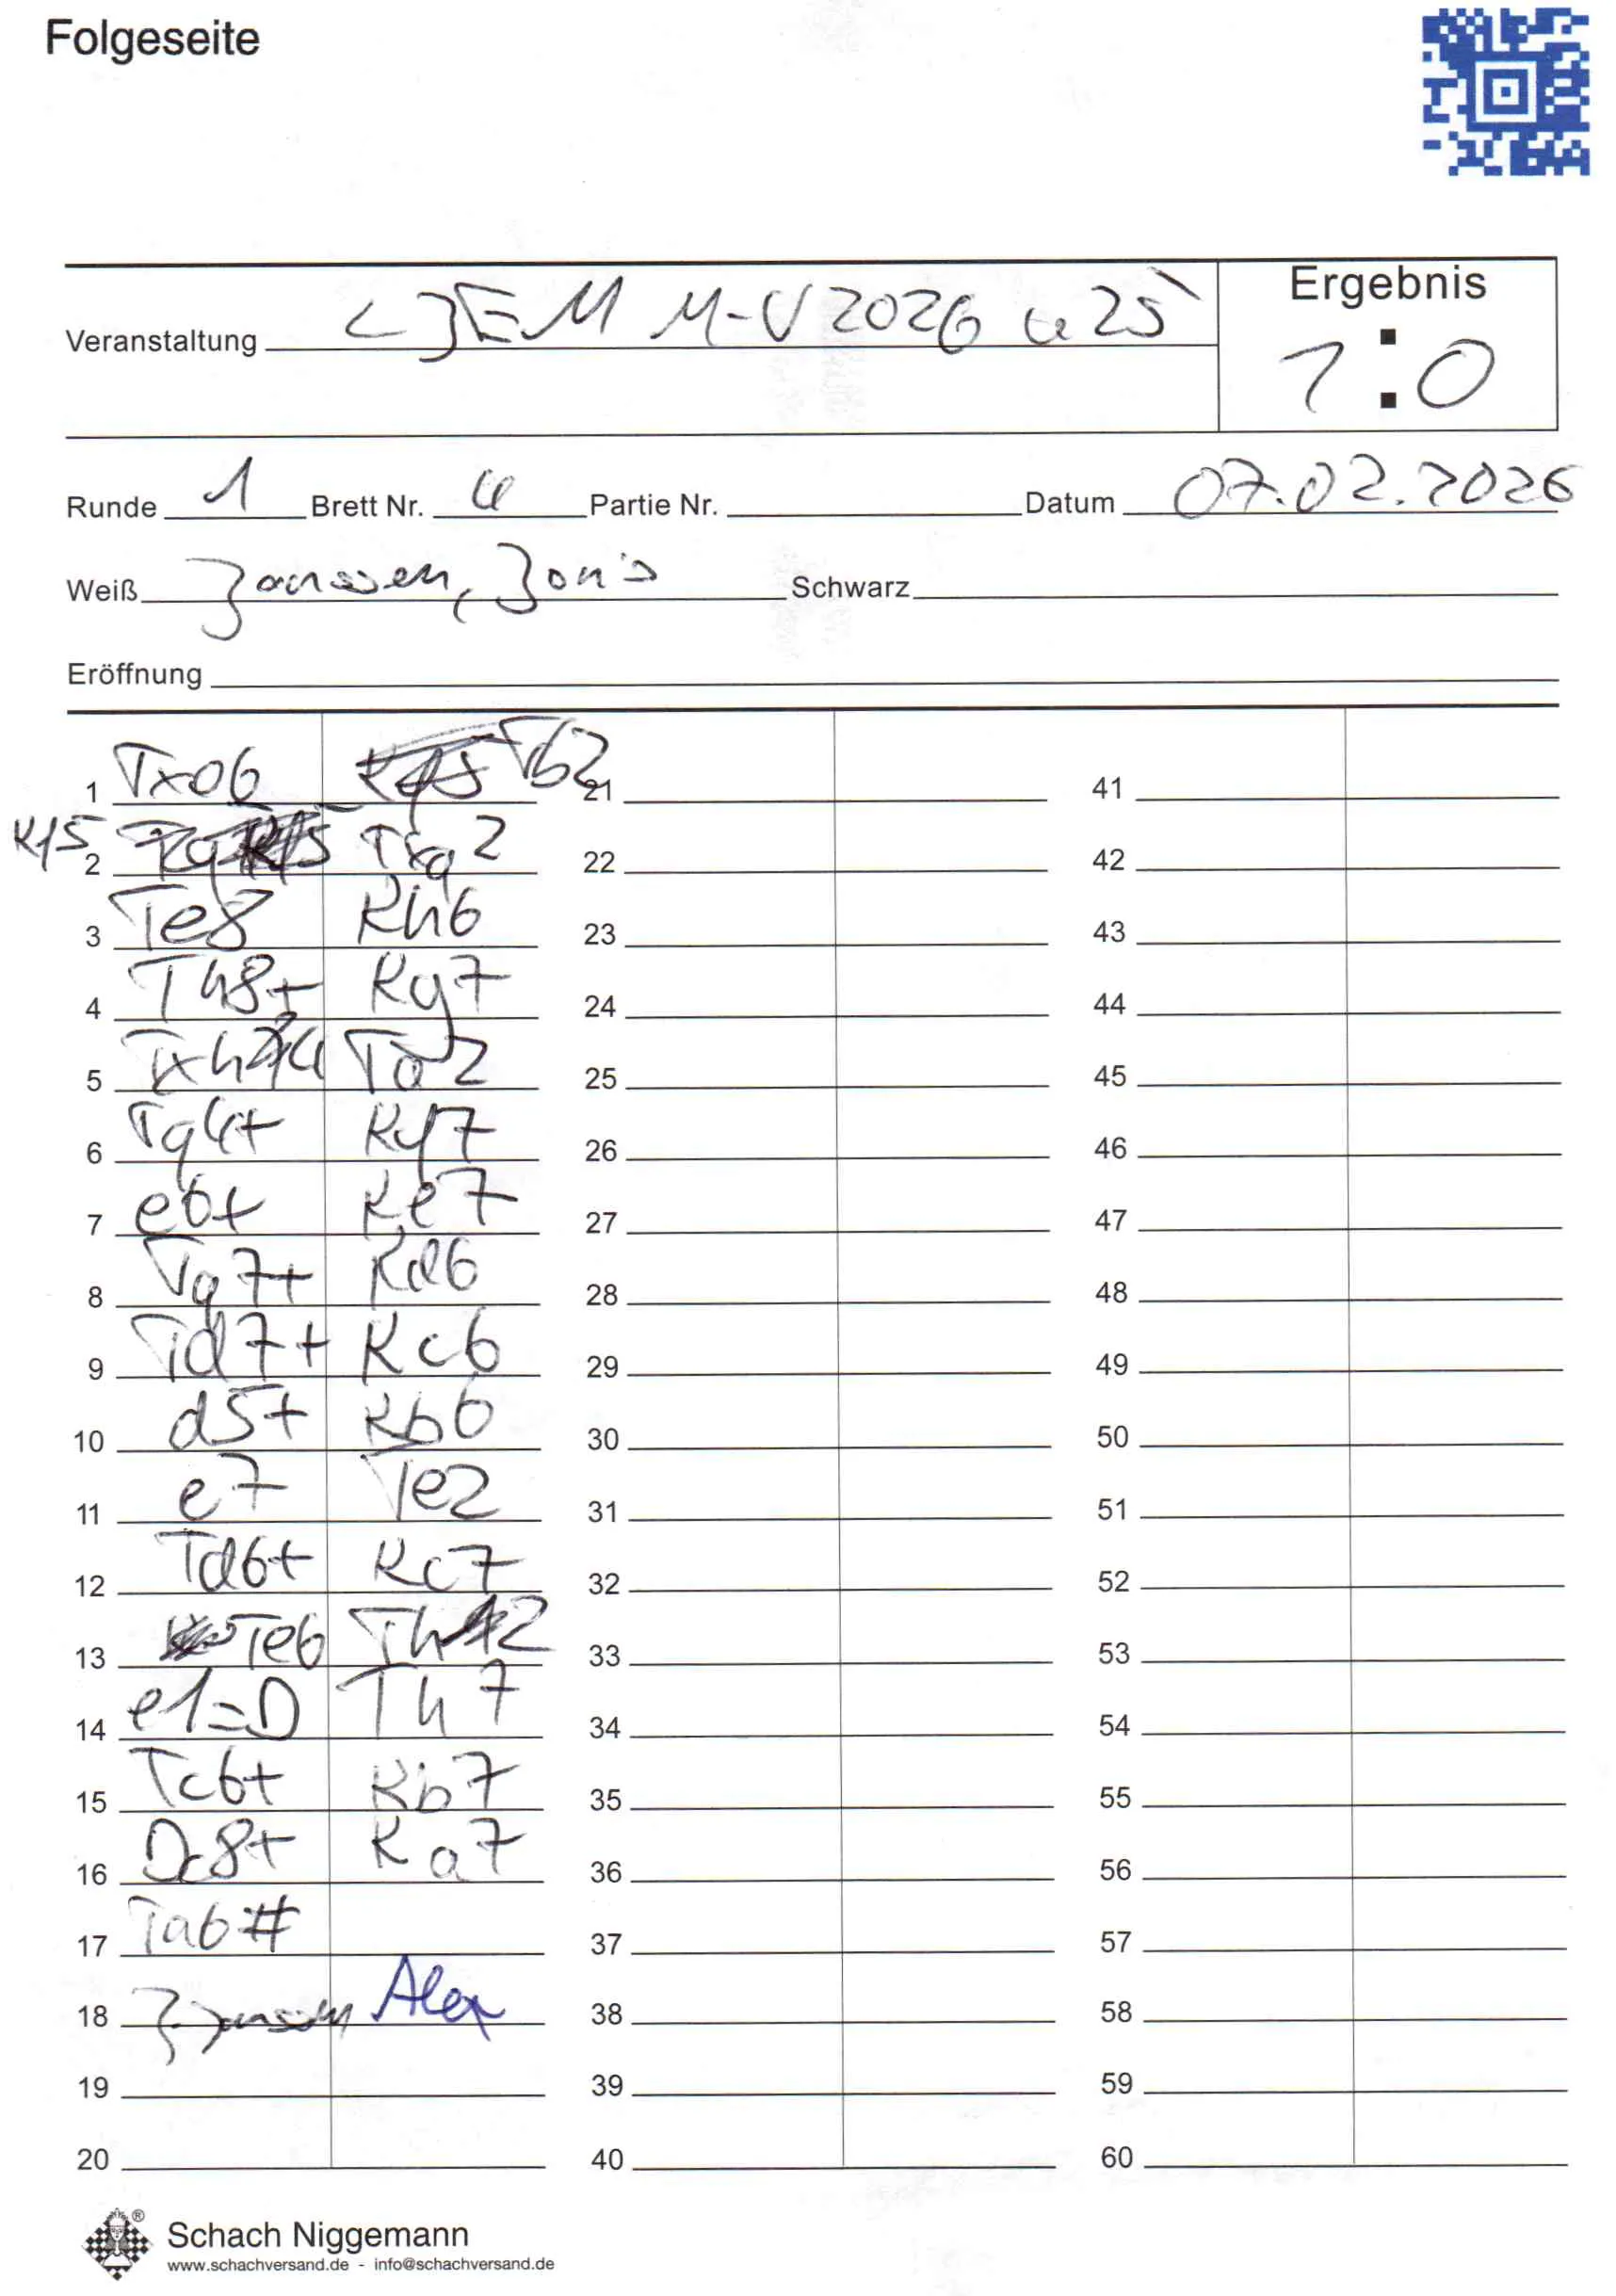 Folgeseite
Veranstaltung LJEM M-V 2026 u25
Ergebnis
1:0
Runde 1 Brett Nr. 4 Partie Nr. Datum 07.02.2026
Weiß Janssen, Jonis Schwarz
Eröffnung
1 Txa6 Tb2 21 41
Kf5 2 Txg2 22 42
3 Te8 Kh6 23 43
4 Th8+ Kg7 24 44
5 Txh4 Ta2 25 45
6 Tg4+ Kf7 26 46
7 e6+ Ke7 27 47
8 Tg7+ Kd6 28 48
9 Td7+ Kc6 29 49
10 d5+ Kb6 30 50
11 e7 Te2 31 51
12 Td6+ Kc7 32 52
13 Te6 Th2 33 53
14 e1=D Th7 34 54
15 Tc6+ Kb7 35 55
16 Dc8+ Ka7 36 56
17 Ta6# 37 57
18 J. Janssen Alex 38 58
19 39 59
20 40 60
®
Schach Niggemann
www.schachversand.de - info@schachversand.de